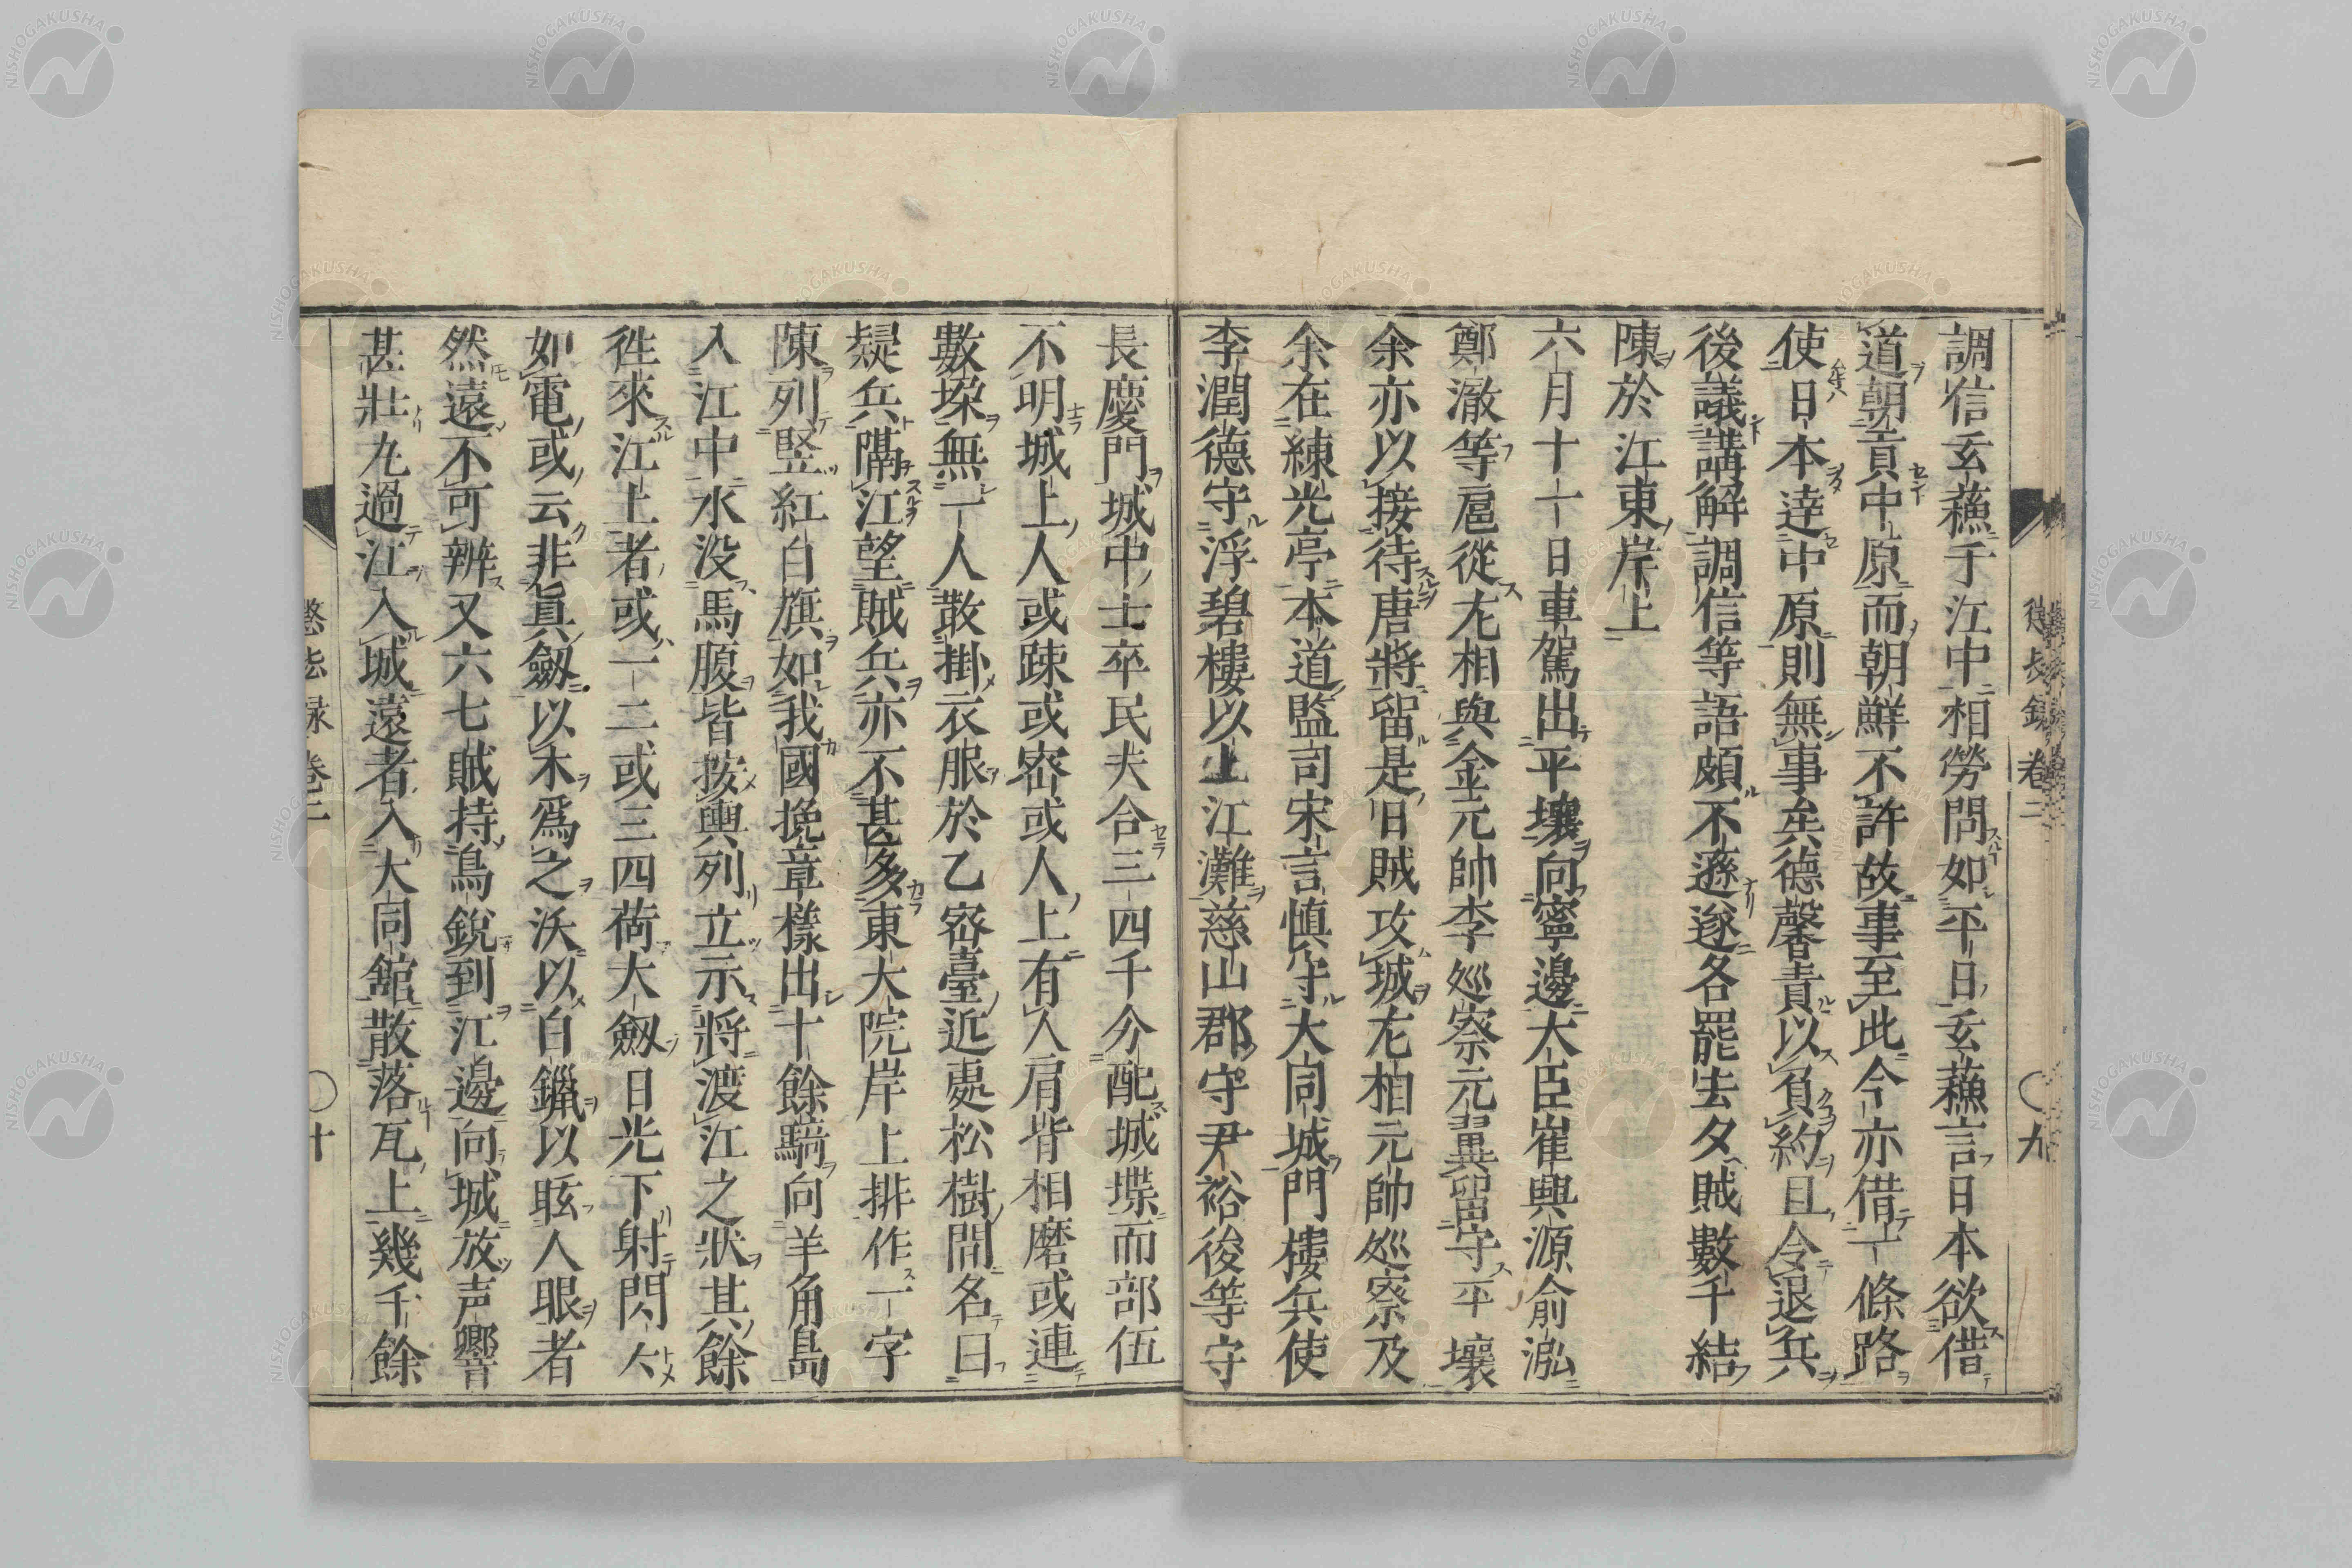 調信玄蘓于江中相勞問如平日玄蘓言日本欲借
道朝貢中原而朝鮮不許故事至此今亦借一條路
使日本達中原則無事矣德馨責以負約且令退兵
後議講解調信等語頗不遜遂各罷去夕賊數千結
陳於江東岸上
六月十一日車駕出平壤向寧邊大臣崔興源俞泓
鄭澈等扈從左相與金元帥李巡察元翼留守平壤
余亦以接待唐將留是日賊攻城左相元帥巡察及
余在練光亭本道監司宋言慎守大同城門樓兵使
李潤德守浮碧樓以上江灘慈山郡守尹裕後等守
長慶門城中士卒民夫合三四千分配城堞而部伍
不明城上人或疎或密或人上有人肩背相磨或連
數垜無一人散掛衣服於乙密臺近處松樹間名曰
疑兵隔江望賊兵亦不甚多東大院岸上排作一字
陳列竪紅白旗如我國挽章樣出十餘騎向羊角島
入江中水没馬腹皆按轡列立示將渡江之狀其餘
徃來江上者或一二或三四荷大劔日光下射閃々
如電或云非真劔以木爲之沃以白鑞以眩人眼者
然遠不可辨又六七賊持鳥銃到江邊向城放声響
甚壯丸過江入城遠者入大同舘散落瓦上幾千餘
卷二
九
十
NISHOGAKUSHA